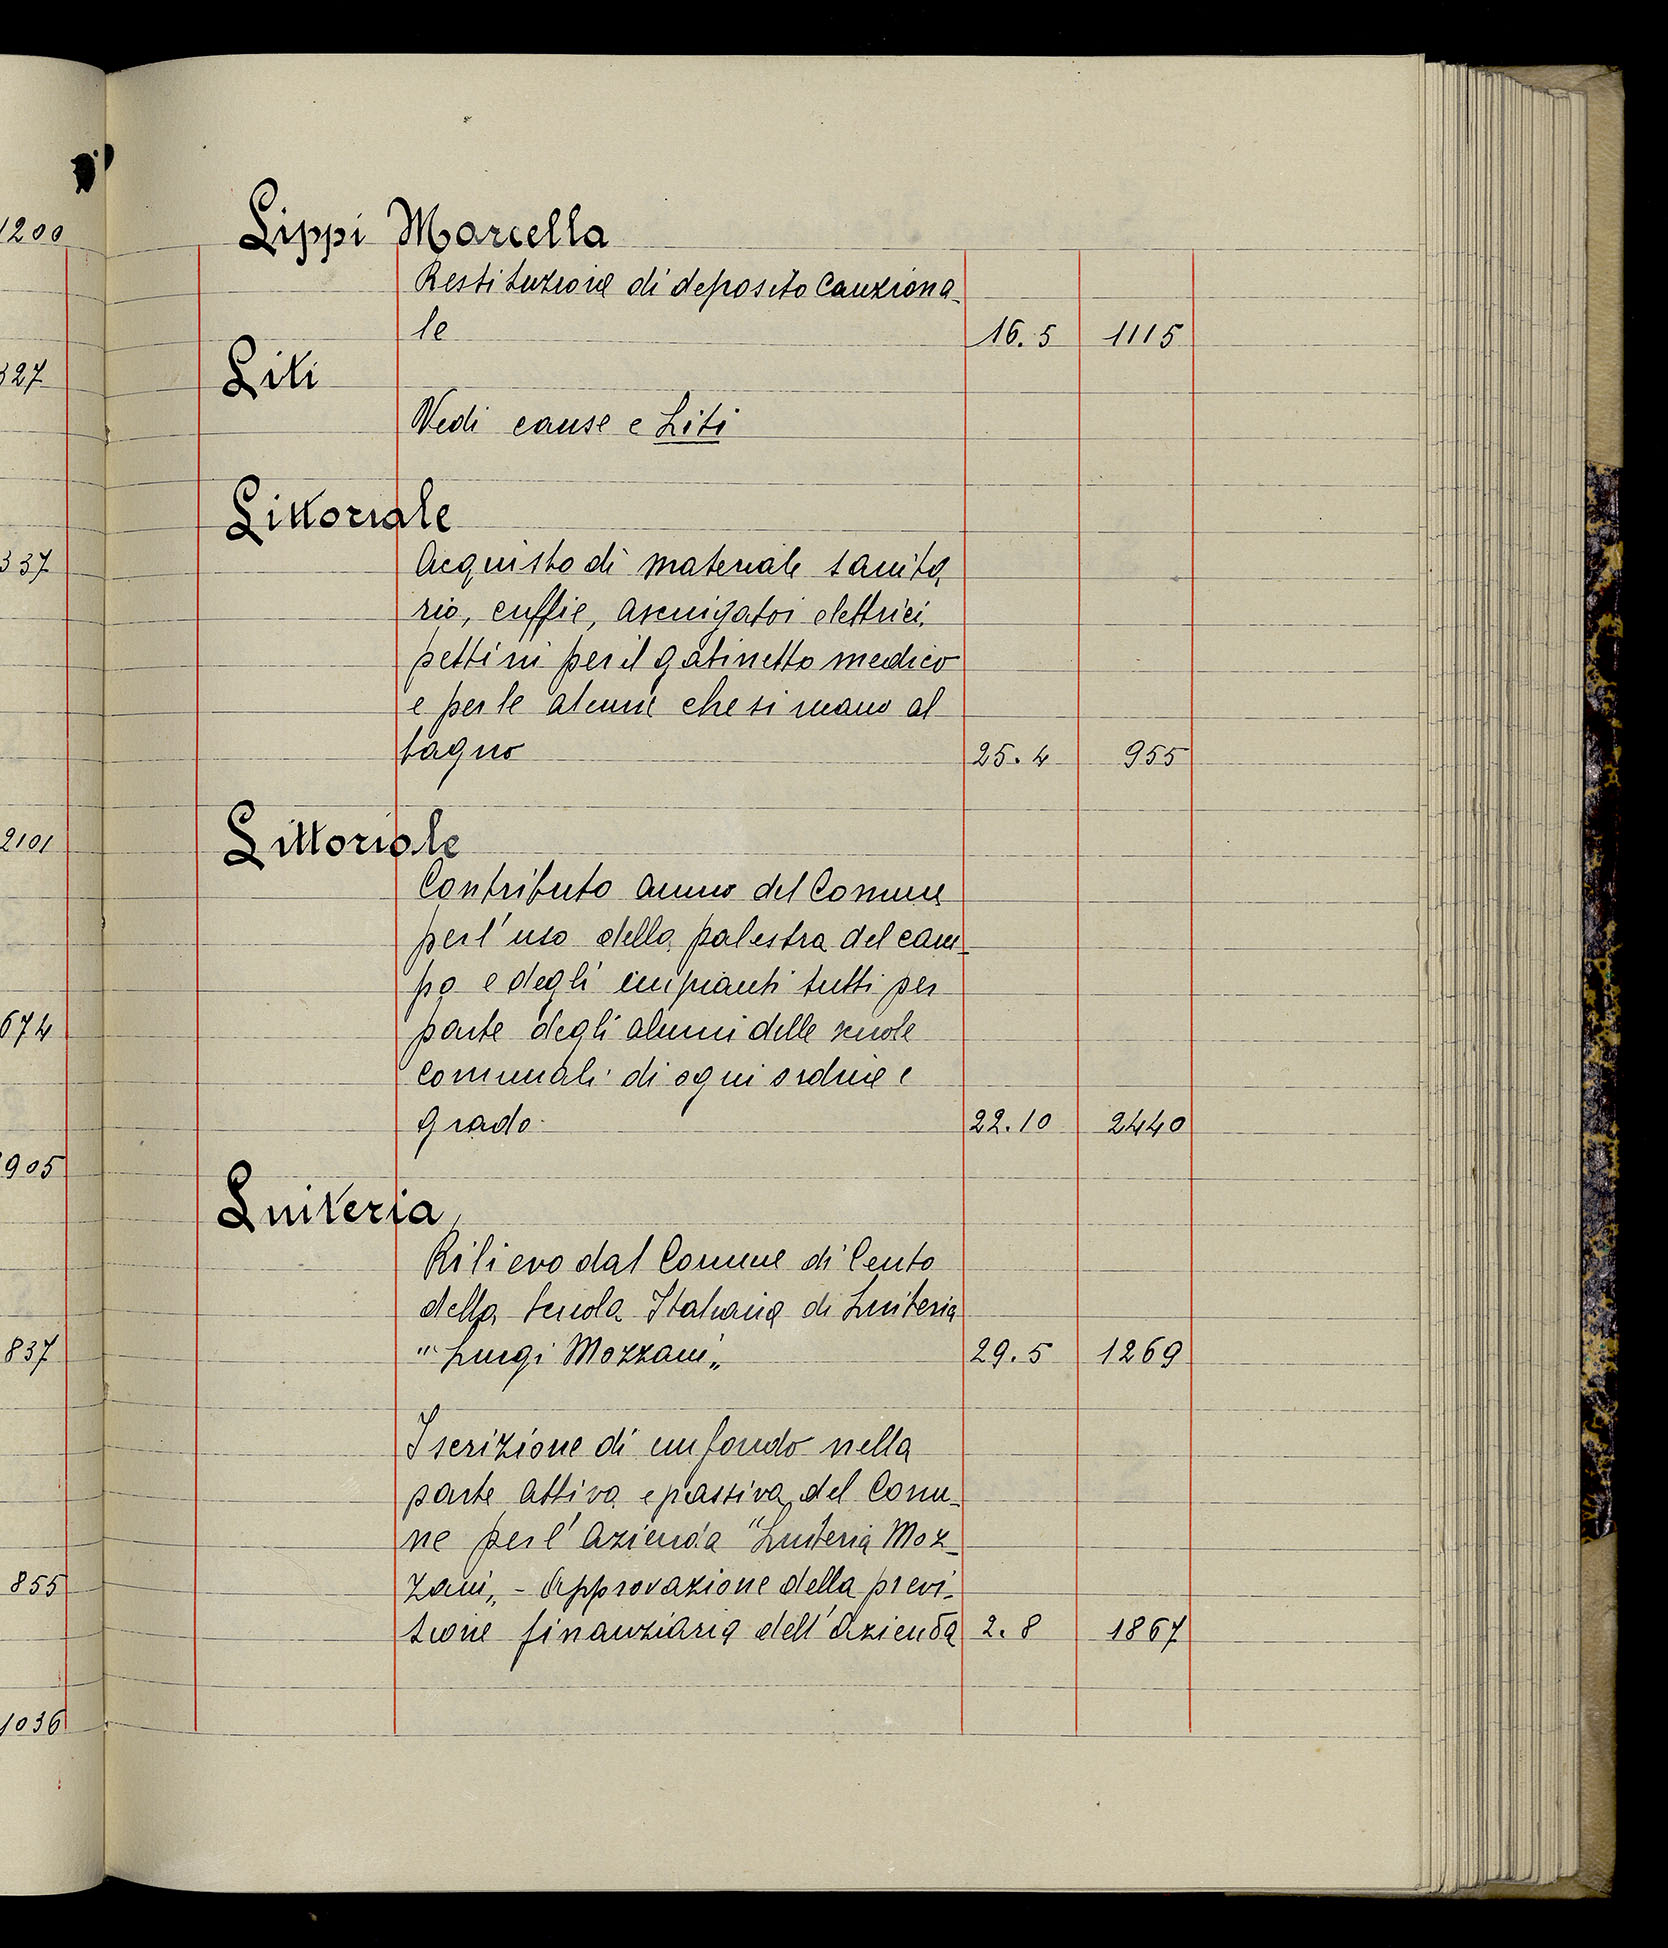 1200
327
337
2101
674
905
837
855
1036
Lippi Marcella
Restituzione di deposito Cauziona-
le 16.5 1115
Liti
Vedi cause e Liti
Littoriale
Acquisto di materiale sanita
rio, cuffie, asciugatoi elettrici,
pettini per il gabinetto medico
e per le alunne che si recano al
bagno 25.4 955
Littoriale
Contributo annuo del Comune
per l'uso della palestra del cam-
po e degli impianti tutti per
parte degli alunni delle scuole
comunali di ogni ordine e
grado. 22.10 2440
Liuteria
Rilievo dal Comune di Cento
della Scuola Italiana di Liuteria
"Luigi Mozzani„ 29.5 1269
Iscrizione di un fondo nella
parte attiva e passiva del Comu-
ne per l'Azienda "Liuteria Moz-
zani„ - Approvazione della previ-
sione finanziaria dell'Azienda 2.8 1867